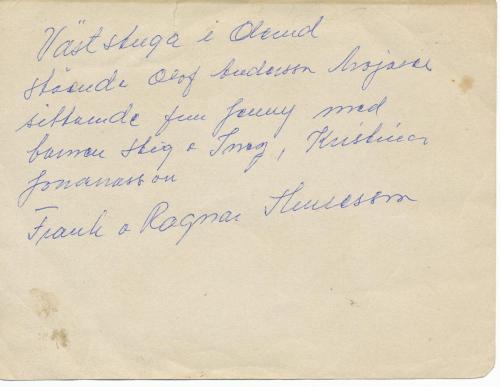 Väst stuga i
stående Olof Andersson
sittande fru Jenny med
barnen Stig o Inez, Kristina
Jonasson
Frank o Ragnar